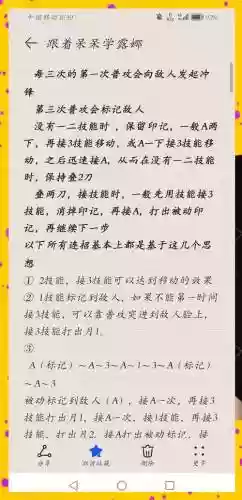 跟着呆呆学露娜
每三次的第一次普攻会向敌人发起冲
锋
第三次普攻会标记敌人
没有一二技能时，保留印记，一般A两
下，再接3技能移动，或A一下接3技能移
动，之后迅速接A，从而在没有一二技能
时，保持叠2刀
叠两刀，接技能时，一般先用技能接3
技能，消掉印记，再接A，打出被动印
记，再继续下一步
以下所有连招基本上都是基于这几个思
想
① 2技能，接3技能可以达到移动的效果
② 1技能标记到敌人，如果不能第一时间
接3技能，可以靠普攻突进到敌人脸上，
接3技能打出月1。
③
A（标记）~A~3~A~1~3~A（标记）
~A~3
被动标记到敌人（A），接A一次，再接3
技能打出月1，接A一次，接1技能，再接3
技能，打出月2，接A打出被动标记，接
分享
取消收藏
删除
更多